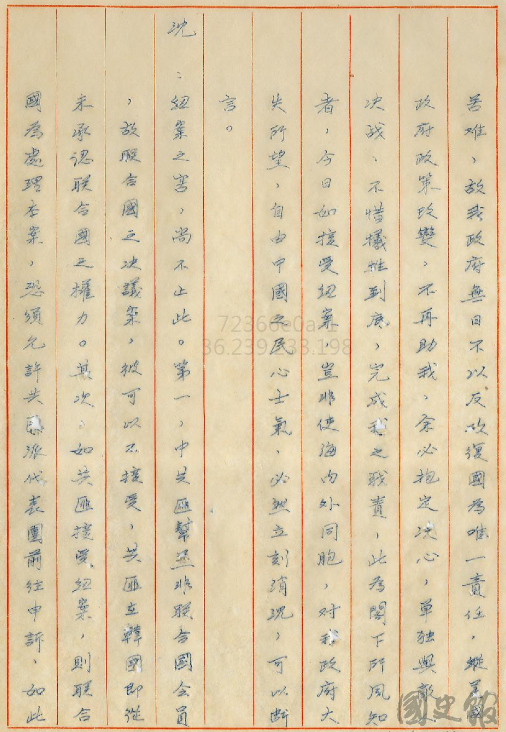 苦难，故我政府無日不以反攻復國為唯一責任，縱美國
政府政策改變，不再助我，余必抱定决心，單独與敵
决战，不惜犧牲到底，完成我之職責，此為閣下所夙知
者，今日如接受紐案，豈非使海内外同胞，对我政府大
失所望，自由中國之民心士氣，必然立刻消沉，可以断
言。
沈：紐案之害，尚不止此。第一，中共匪幫並非联合國会員
，故联合國之决議案，彼可以不接受，共匪在韓國即從
未承認联合國之權力。其次，如共匪接受紐案，則联合
國為處理本案，恐須允許共匪派代表團前往申訴，如此
72366e0a
36.239.233.198
國史館